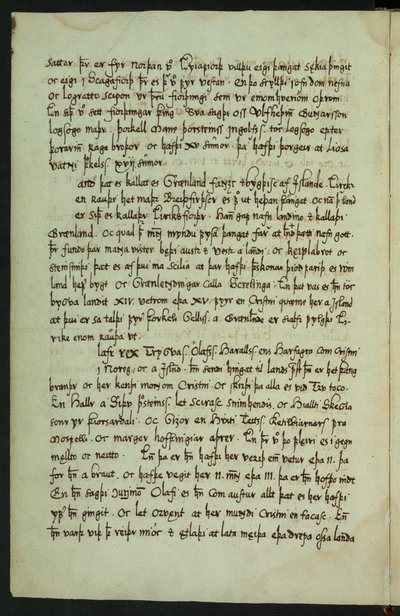 sätter þr er fyr norþan v̊ Eyiafiorþ villdu eigi þangat sökia þingit
oc eigi i Scagafiorþ þr es þr v̊ fyr vestan. En þo skylldi iofn dom nefna
oc logretto scipon ur þrĩ fiorþungi sem ur enomhveriom oþrom.
En siþ v̊ sett fiorþungar þing. Sva sagþi oss Ulfheþiñ Guñarsson
logsogo maþr. þorkell Mane þorsteinss Ingolfss. toc logsogo epter
þorariñ Raga broþor oc hafþi XV sumor. þa hafþi þorgeir at liosa
vatni þkelss. XVII sumor.
Land þat es kallat es Grænland fañsc oc bygþisc af Islande. Eirekr
en rauþe het maþr Breiþfirþscr es för ut heþan þangat. oc nã þ land
er siþ es kallaþr Eiriksfiorþr. Hañ gaf nafn landino. oc kallaþi
Grænland. oc quad þ mỹ myndu fysa þangat farar at landþ ætti nafn gott.
þr fundo þar mañavister bæþi austr oc vestr a landi. oc keiplabrot oc
steinsmiþi þat es af þvi ma scilia at þar hafþi þesskonar þiod fariþ es vin
land hefr bygt oc Grænlendingar calla Screlinga. En þat vas es hñ toc
byGva landit XIV. vetrom eþa XV. fyrr en Cristni quæme her a Island
at þvi er sa talþi fyr þorkeli Gellis. a Grænlande er sialfr fylgþi Ei-
rike enom rauþa ut.
lafr rex Tryggvas. Olafss. Haralldss. ens Harfagra com Cristni
i Noreg. oc a Island. Hñ sendi hingat til lands prest þañ er het þang
brandr oc her kendi monnom Cristni. oc skirþi þa alla es vid tru toco.
En Hallr a Siþu þorsteinss. let scirasc snimhendis. oc Hiallti Skeggia
sonr ur þiorsardali. oc Gizor en Hviti Teitss. Ketilbiarnars. fra
Mosfelle. oc marger hofþingiar aþrer. En þr v̊ þo fleiri es i gegn
mællto oc neitto. En þa er hñ hafþi her verit eiñ vetur eþa II. þa
for hñ a braut. oc hafþe vegit her II. meñ eþa III. þa er hñ hofþo nidt
En hñ sagþi Olafi es hñ com austur allt þat es her hafþi
yfr hñ gingit. oc let orvent at her mundi Cristni eñ tacasc. En
hñ varþ viþ þ reiþr mioc oc etlaþi at lata meiþa eþa drepa ossa landa